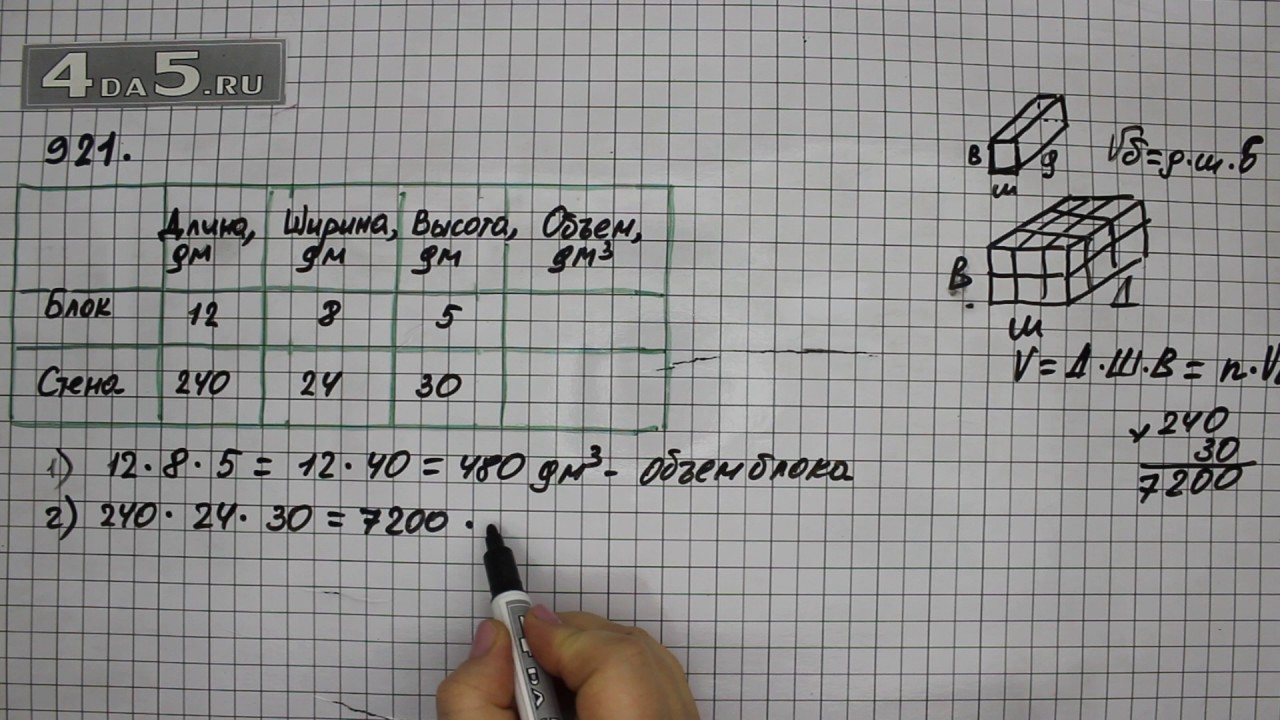 4DA5.RU
921.
Длина, дм Ширина, дм Высота, дм Объем, дм³
Блок 12 8 5
Стена 240 24 30
1) 12·8·5 = 12·40 = 480 дм³ - объем блока
2) 240·24·30 = 7200 ·
в
ш
д
Vб=д·ш·в
В
Ш
Д
V=Д·Ш·В= n·V
× 240
30
7200